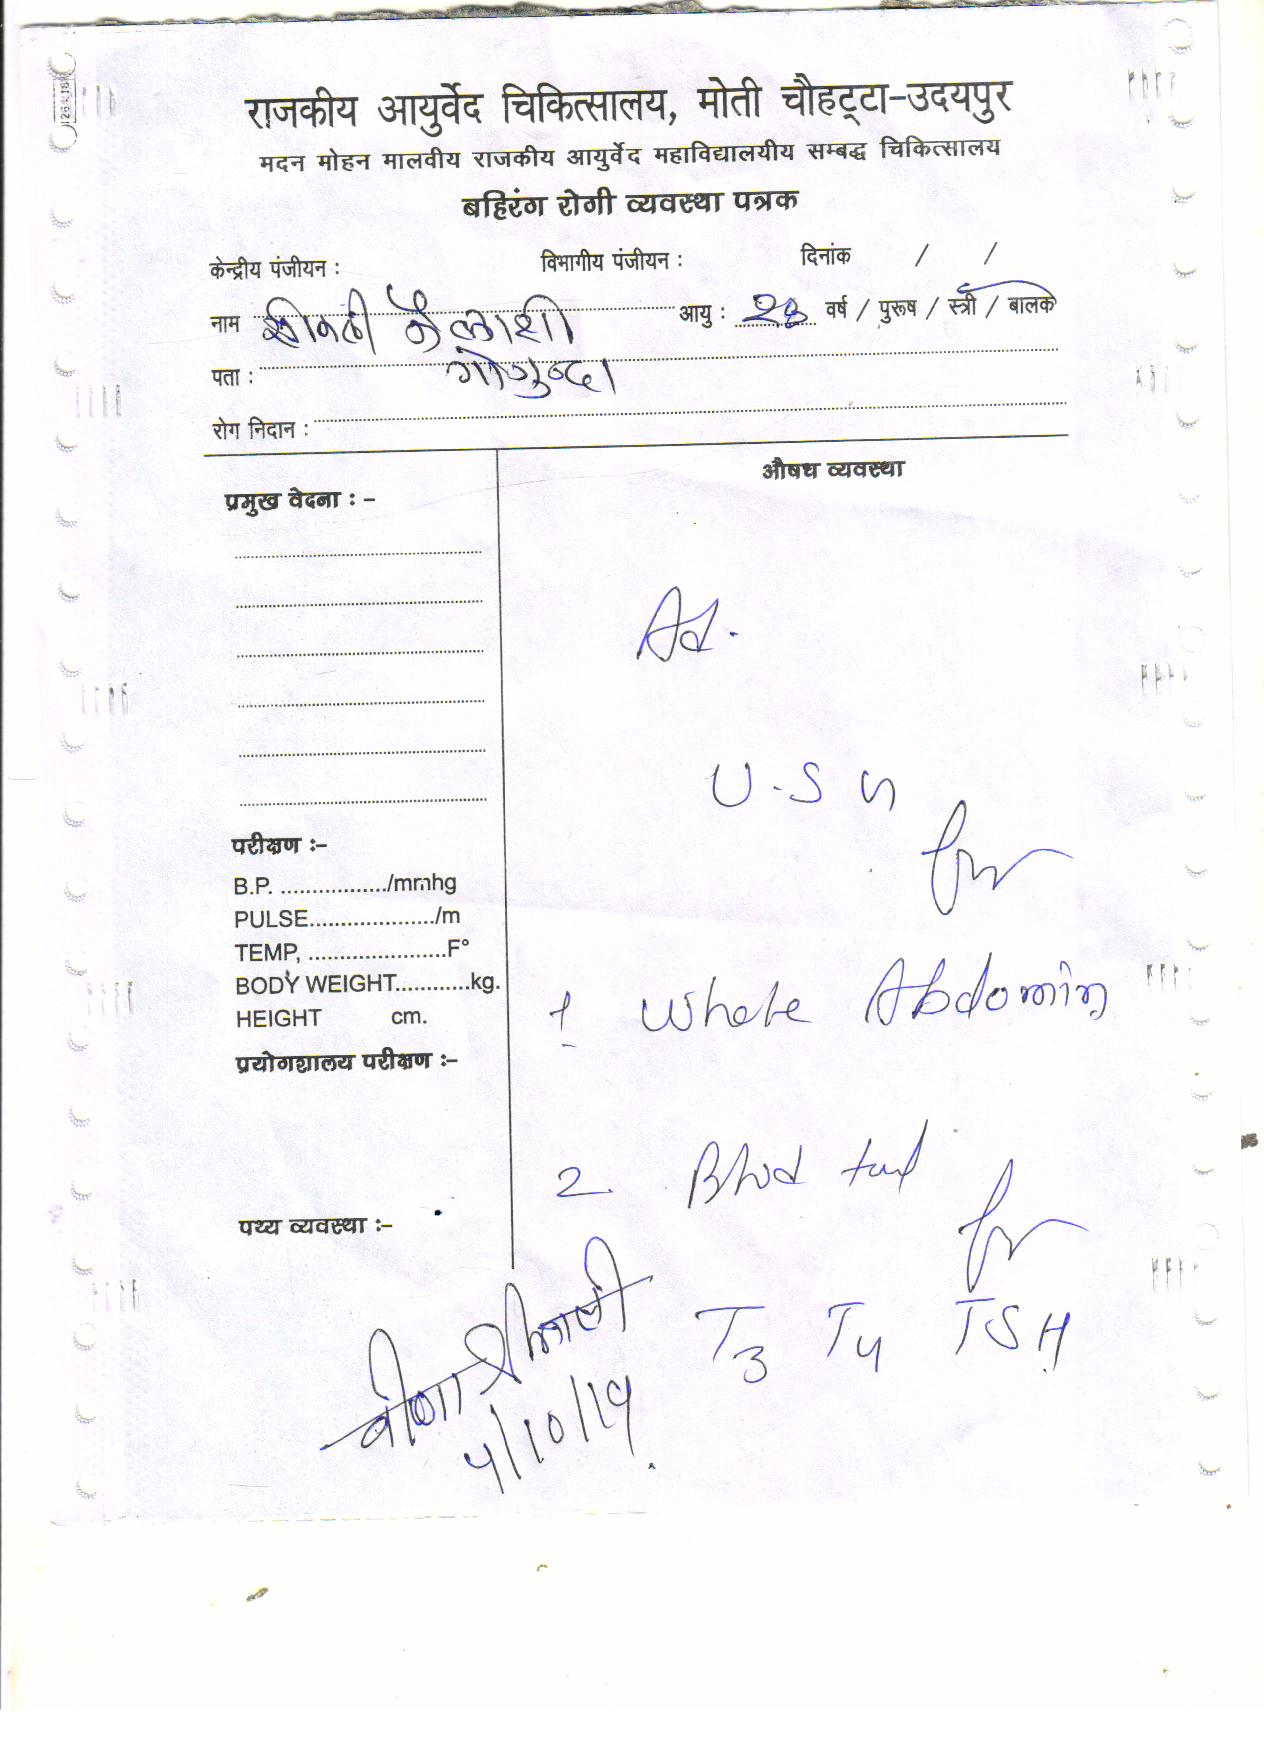 राजकीय आयुर्वेद चिकित्सालय, मोती चौहट्टा-उदयपुर
मदन मोहन मालवीय राजकीय आयुर्वेद महाविद्यालयीय सम्बद्ध चिकित्सालय
बहिरंग रोगी व्यवस्था पत्रक
केन्द्रीय पंजीयन : विभागीय पंजीयन : दिनांक / /
नाम कैलाशी आयु : वर्ष / पुरूष / स्त्री / बालक
पता : गोगुन्दा
रोग निदान :
औषध व्यवस्था
प्रमुख वेदना : -
Ad.
U.S G
for
परीक्षण :-
B.P. ................./mmhg
PULSE..................../m
TEMP, ......................F°
BODY WEIGHT............kg.
HEIGHT cm.
1 Whole Abdomin
प्रयोगशालय परीक्षण :-
2. Blood test
for
पथ्य व्यवस्था :-
T3 T4 TSH
4/10/19